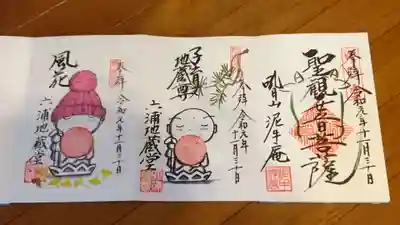 奉拝 令和元年十一月三十日
聖観世音菩薩
吼月山 泥牛庵
奉拝 令和元年十一月三十日
子育
地蔵尊
六浦地蔵堂
奉拝 令和元年十一月三十日
風花
六浦地蔵堂